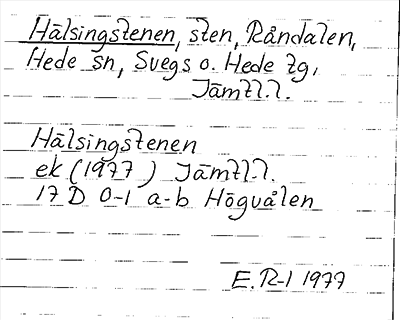 Hälsingstenen, sten, Råndalen,
Hede sn, Svegs o. Hede tg,
Jämtl.l.
Hälsingstenen
ek (1977) Jämtl.l.
17 D 0-1 a-b Högvålen
E. R-l 1977